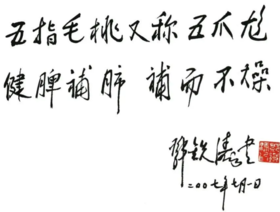 五指毛桃又称五爪尨
健脾補肺 補而不燥
邓铁涛
二〇〇七年七月一日